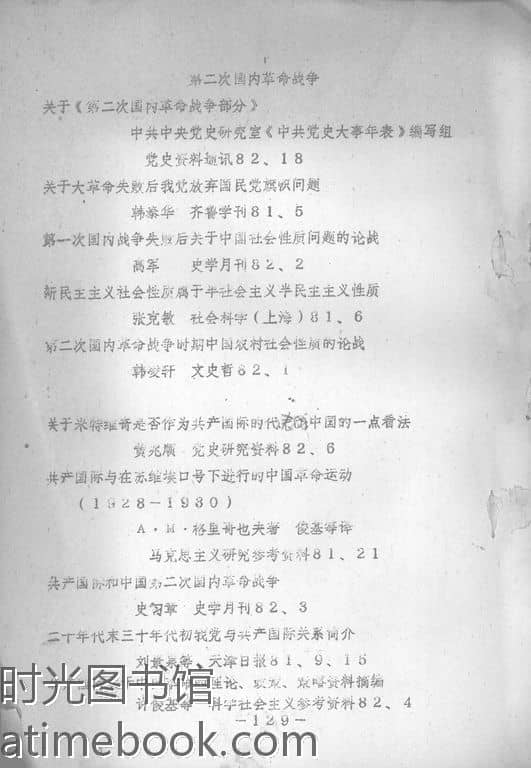 第二次国内革命战争
关于《第二次国内革命战争部分》
中共中央党史研究室《中共党史大事年表》编写组
党史资料通讯82、18
关于大革命失败后我党放弃国民党旗帜问题
韩泰华 齐鲁学刊81、5
第一次国内战争失败后关于中国社会性质问题的论战
高军 史学月刊82、2
新民主主义社会性质属于半社会主义半民主主义性质
张克敏 社会科学(上海)81、6
第二次国内革命战争时期中国农村社会性质的论战
韩凌轩 文史哲82、1
关于米特维哥是否作为共产国际的代表的中国的一点看法
黄兆康 党史研究资料82、6
共产国际与在苏维埃口号下进行的中国革命运动
(1928-1930)
A·M·格里哥也夫著 俊基等译
马克思主义研究参考资料81、21
共产国际和中国第二次国内革命战争
史习章 史学月刊82、3
二十年代末三十年代初我党与共产国际关系简介
刘景泉等 天津日报81、9、15
理论、政策、策略资料摘编
许俊基等 科学社会主义参考资料82、4
-129-
时光图书馆
atimebook.com